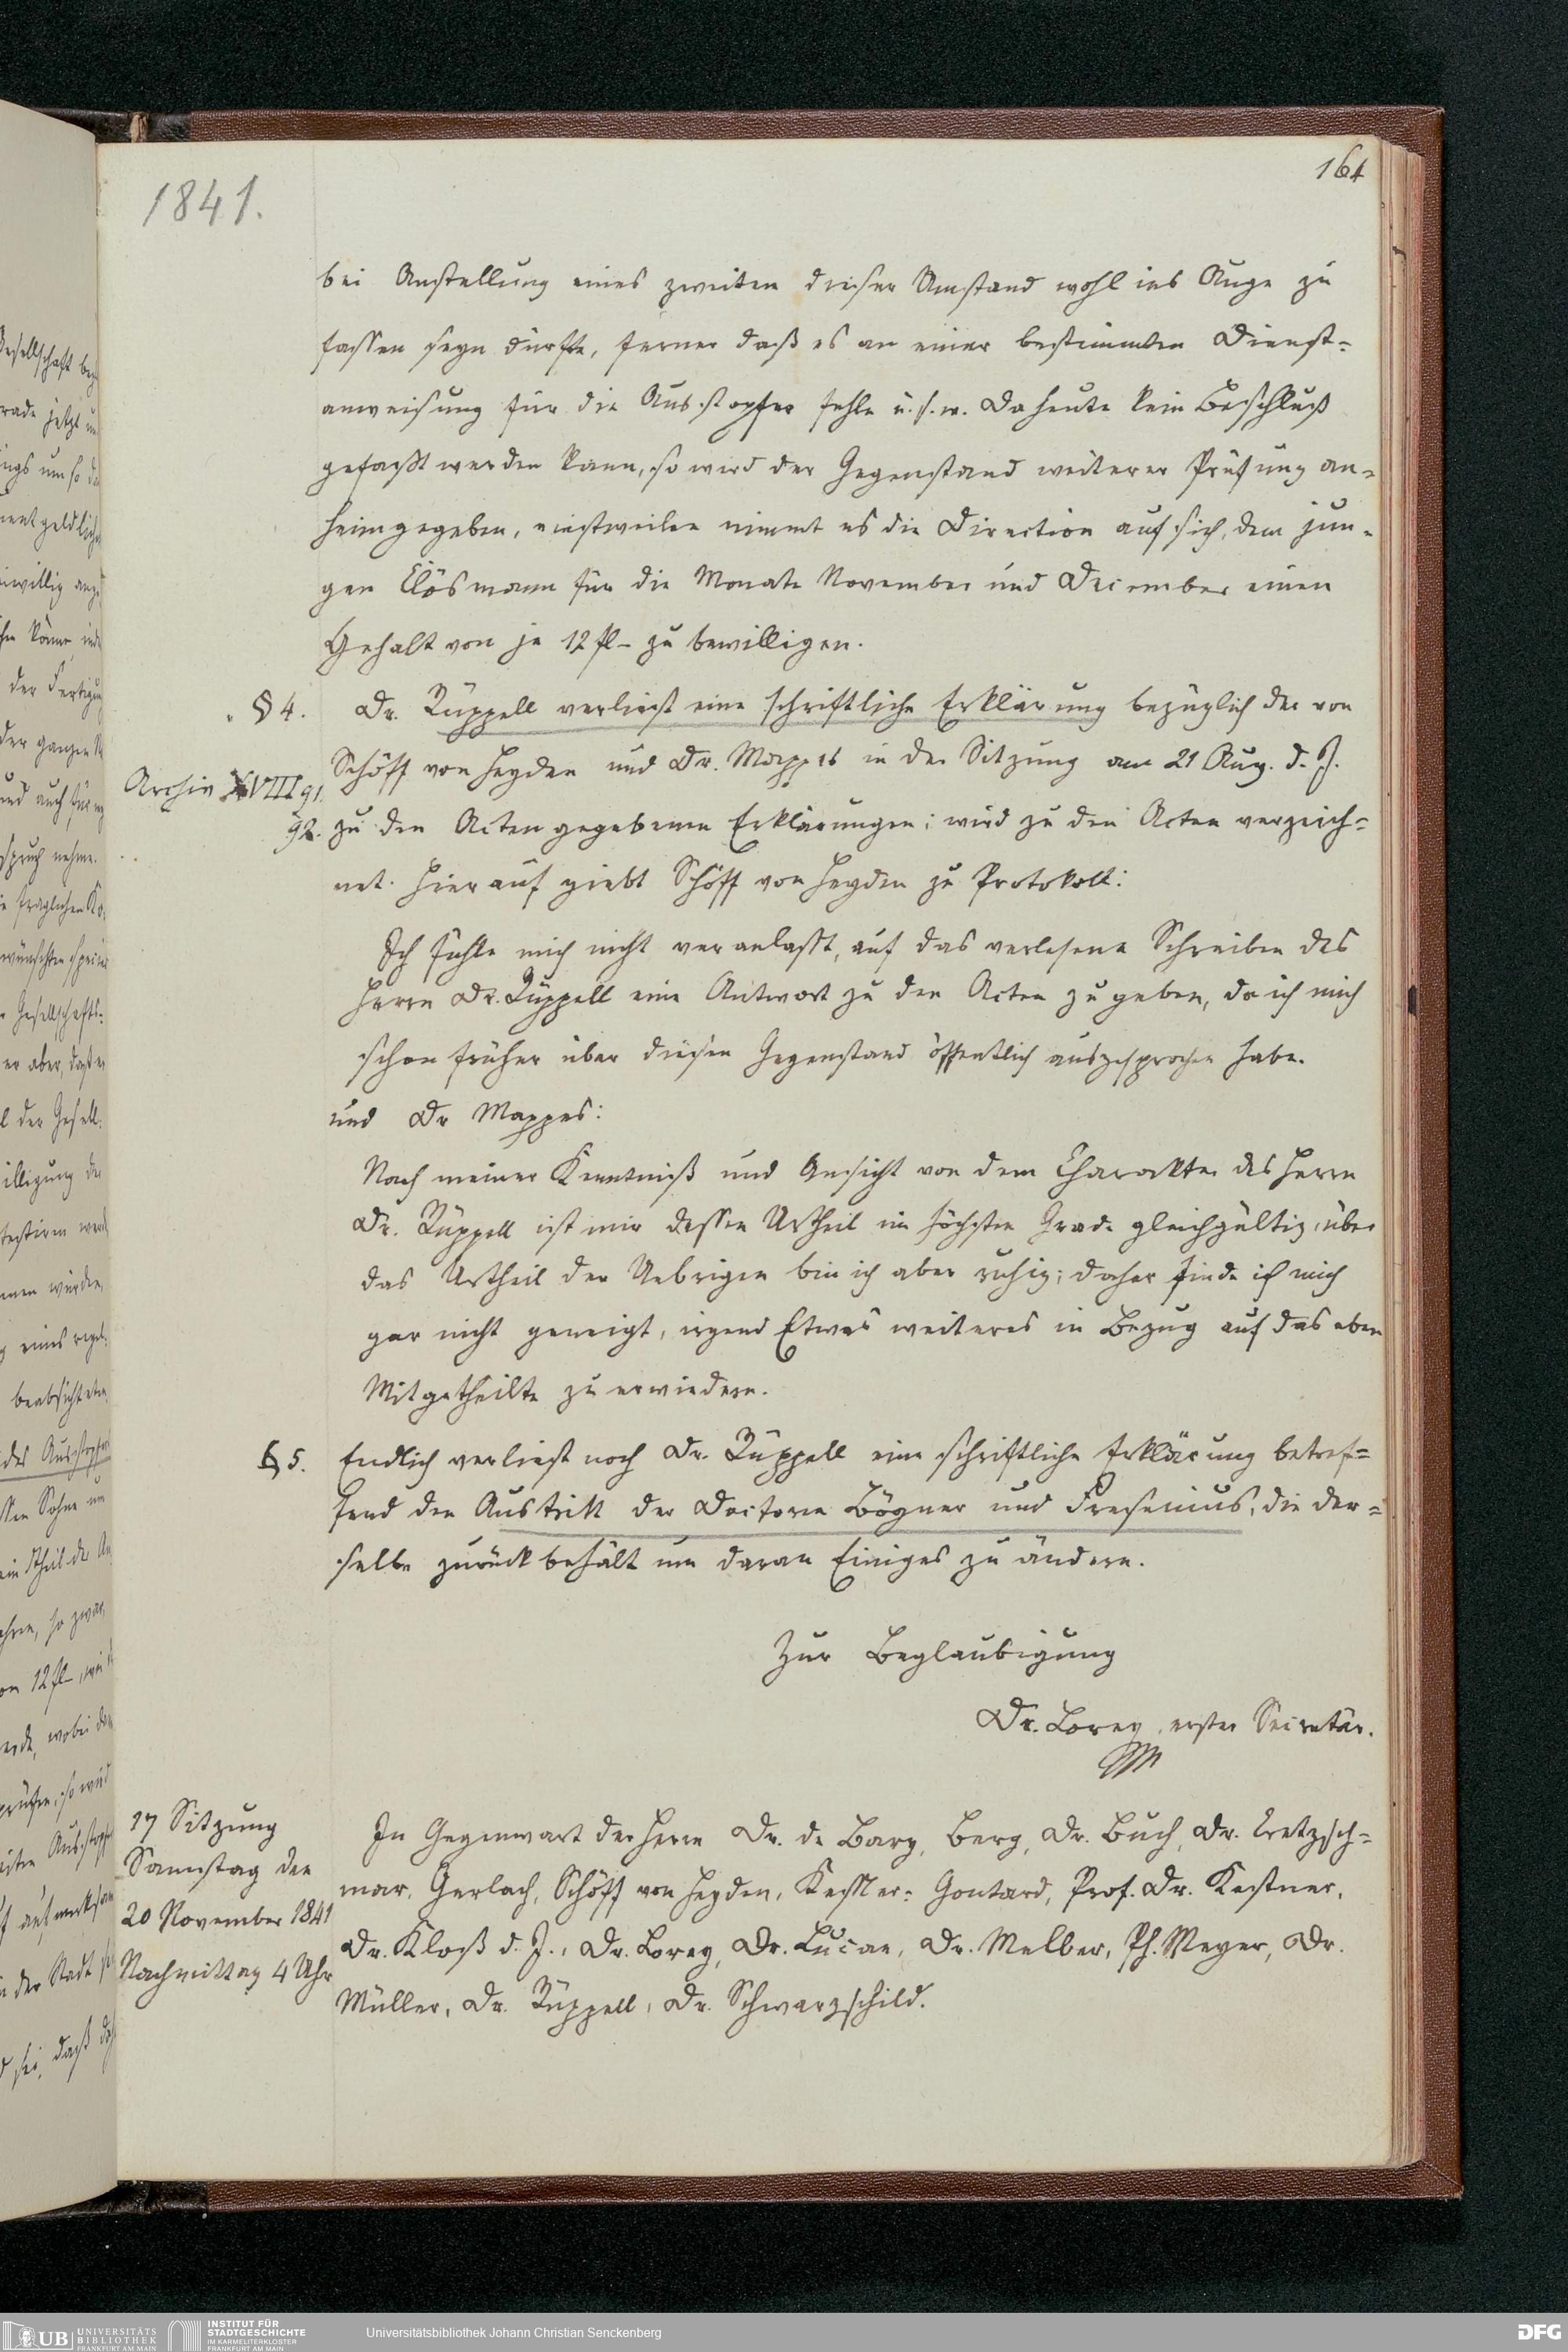 164
1841.
bei Anstellung eines zweiten dieser Umstand wohl ins Auge zu
fassen seyn dürfte, ferner daß es an einer bestimmten Dienst=
anweisung für die Ausstopfer fehle u. s. w. Da heute kein Beschluß
gefasst werden kann, so wird der Gegenstand weiterer Prüfung an=
heimgegeben, einstweilen nimmt es die Direction auf sich, dem jun=
gen Elösmann für die Monate November und December einen
Gehalt von je 12 fl – zu bewilligen.
§ 4. Dr. Rüppell verliest eine schriftliche Erklärung bezüglich der von
Schöff von Heyden und Dr. Mappes in der Sitzung am 21 Aug. d. J.
Archiv XVIII 91.
92. zu den Acten gegebenen Erklärungen; wird zu den Acten verzeich=
net. Hierauf giebt Schöff von Heyden zu Protokoll:
Ich fühle mich nicht veranlasst, auf das verlesene Schreiben des
Herrn Dr. Rüppell eine Antwort zu den Acten zu geben, da ich mich
schon früher über diesen Gegenstand öffentlich ausgesprochen habe.
und Dr Mappes:
Nach meiner Kenntniß und Ansicht von dem Charakter des Herrn
Dr. Rüppell ist mir dessen Urtheil im höchsten Grade gleichgültig, über
das Urtheil der Uebrigen bin ich aber ruhig; daher finde ich mich
gar nicht geneigt, irgend Etwas weiteres in Bezug auf das eben
Mitgetheilte zu erwiedern.
§ 5. Endlich verliest noch Dr. Rüppell eine schriftliche Erklärung betref=
fend den Austritt der Doctoren Bögner und Fresenius, die der=
selbe zurückbehält um daran Einiges zu ändern.
Zur Beglaubigung
Dr. Lorey, erster Secretär.
17 Sitzung
Samstag den
20 November 1841
Nachmittag 4 Uhr
In Gegenwart der Herrn Dr. de Bary, Berg, Dr. Buch, Dr. Cretzsch=
mar, Gerlach, Schöff von Heyden, Kessler=Gontard, Prof. Dr. Kestner,
Dr. Kloß d. J., Dr. Lorey, Dr. Lucae, Dr. Melber, Ph. Meyer, Dr.
Müller, Dr. Rüppell, Dr. Schwarzschild.
UB UNIVERSITÄTS
BIBLIOTHEK
FRANKFURT AM MAIN
INSTITUT FÜR
STADTGESCHICHTE
IM KARMELITERKLOSTER
FRANKFURT AM MAIN
Universitätsbibliothek Johann Christian Senckenberg
DFG